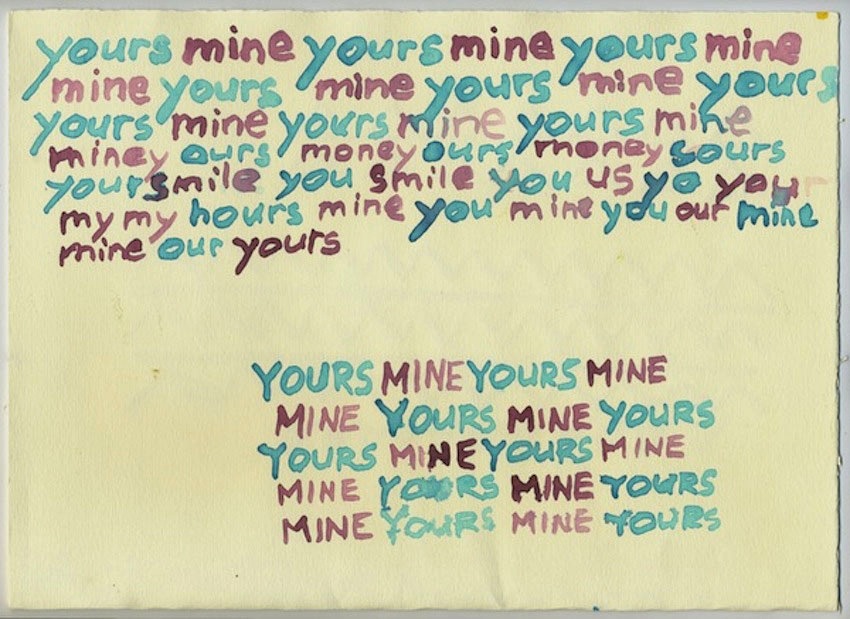 yours mine yours mine yours mine
mine yours mine yours mine yours
yours mine yours mine yours mine
miney ours money ours money yours
yours smile you smile you us yo your
my my hours mine you mine you our mine
mine our yours
YOURS MINE YOURS MINE
MINE YOURS MINE YOURS
YOURS MINE YOURS MINE
MINE YOURS MINE YOURS
MINE YOURS MINE YOURS